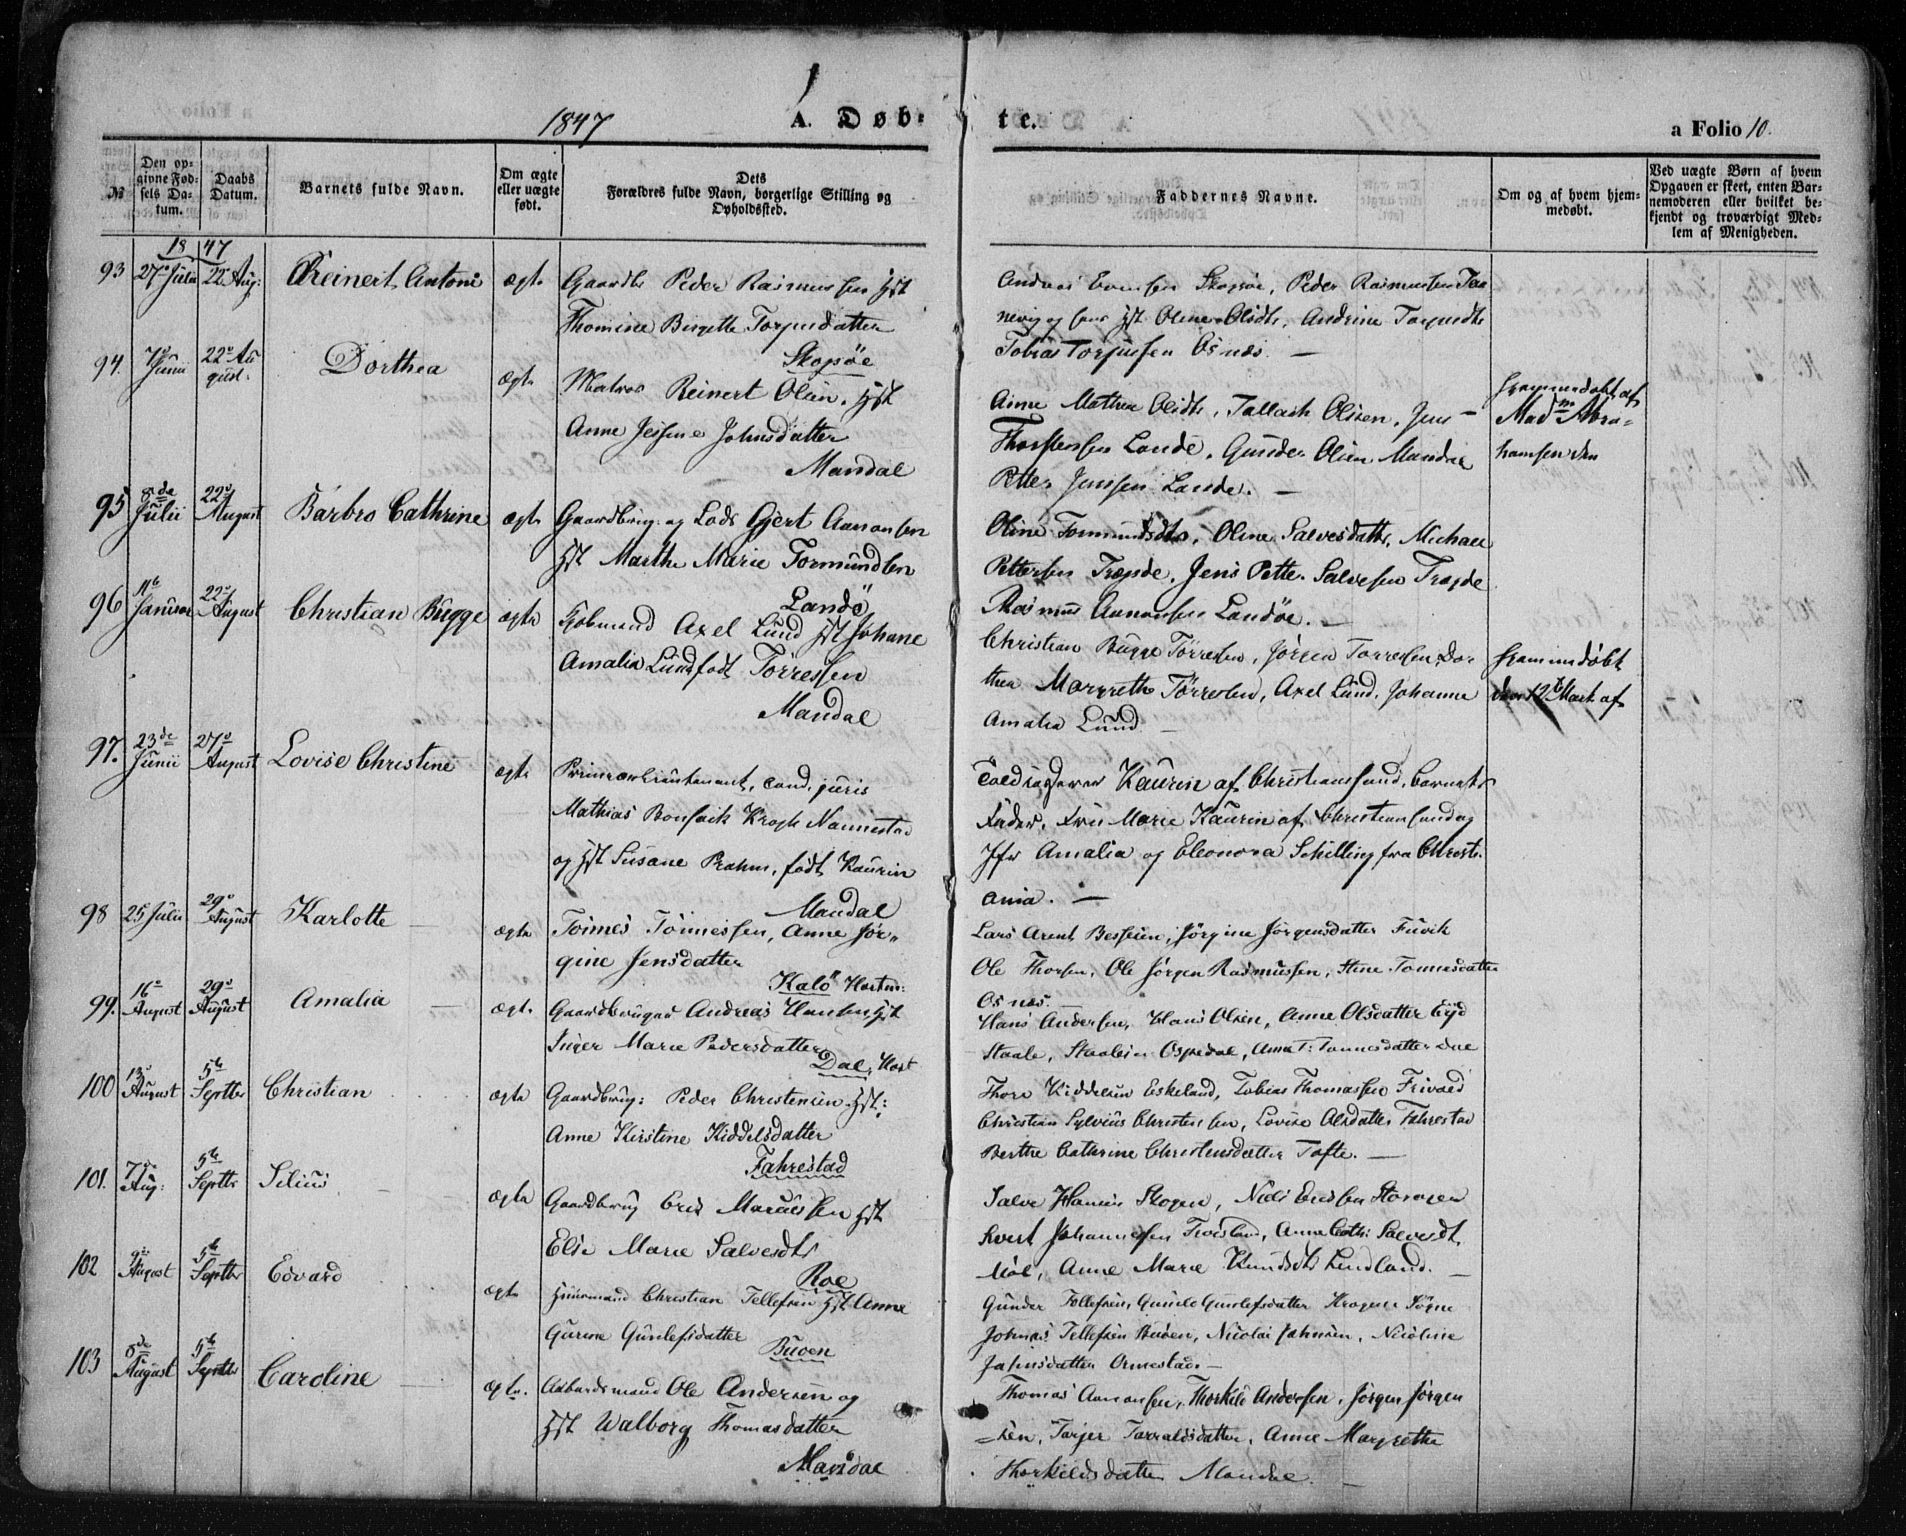 1847
A. Døb-
te.
a Folio 10.
№
Den op-
givne Fød-
sels Da-
tum.
Daabs
Datum.
Barnets fulde Navn.
Om ægte
eller uægte
født.
Dets
Forældres fulde Navn, borgerlige Stilling og
Opholdssted.
Faddernes Navne.
Om og af hvem hjem-
medøbt.
Ved uægte Børn af hvem
Opgaven er skeet, enten Bar-
nemoderen eller hvilket be-
kjendt og troværdigt Med-
lem af Menigheden.
1847
93 27 Julii 22 Aug: Reinert Antoni ægte
Peder Rasmussen Hst
Thomine Birgitte Torjusdatter
Skogsøe
Skogsøe, Peder Rasmussen
Hst Oline Olsdtr, Andrine Torjusdtr
Tobias Torjussen Osnæs. —
94. 7 Junii 22 Au
gust. Dorthea ægte
Matros Reinert Olsen, Hst
Anne Jessine Johnsdatter
Mandal
Anne Mathea Olsdtr, Tallack Olsen, Jens
Thorstensen Lande, Gunder Olsen Mandal
Petter Jenssen Lande. —
hjemmedøbt af
Mad Abra-
hamsen den
95 8de Julii 22 August Barbro Cathrine ægte
Gaardbrug. og Lods Gjert Aanonsen
Hst Marthe Marie Tormundsen
Landø
Oline Tormundsdtr, Oline Salvesdatter, Michael
Pettersen Trægde, Jens Petter Salvesen Trægde
Rasmus Aanonsen Landøe. —
96 Januar 22 August Christian Bugge ægte
Kjøbmand Axel Lund Hst Johane
Amalia Lund født Tørressen
Mandal
Christian Bugge Tørressen, Jørgen Tørressen, Dor
thea Margrethe Tørressen, Axel Lund, Johanne
Amalia Lund
hjemmedøbt
den 12 Mart af
97. 23de Junii 27 August Lovise Christine ægte
Premierlieutenant, cand. juris
Mathias Bonsach Krogh Nannestad
og Hst Susane Prahm, født Kaurin
Mandal
Kaurin af Christianssand, Barnets
Fader, Fru Marie Kaurin af Christianssand og
Jfr Amalia og Eleonora Schilling fra Christi-
ania. —
98 25 Julii 29 August Karlotte — ægte
Tønnes Tønnessen, Anne Jør-
gine Jensdatter
Kalø
Lars Arent Bessesen, Jørgine Jørgensdatter
Ole Thorsen, Ole Jørgen Rasmussen, Stine Tønnesdatter
Osnæs.
99. 16 August 29 August Amalia — ægte
Gaardbruger Andreas Hansen Hst
Inger Marie Pedersdatter
Dal, Hart
Hans Andersen, Hans Olsen, Anne Olsdatter
Ospedal, Anne T: Tønnesdatter Dal
100 13 August 5te Septbr Christian ægte
Gaardbrug: Peder Christensen Hst:
Anne Kirstine Kiddelsdatter
Fahrestad
Thore Kiddelsen Eskeland, Tobias Thomassen
Christian Sylvius Christensen, Lovise Olsdatter Fahrestad
Berthe Cathrine Christensdatter Tofte. —
101. 7de Aug: 5te Septbr — ægte
Gaardbrug Hst
Elie Marie Salvesdtr
Roe
Salve Hansen Skogen, Niels Ericksen
Johannesen Anne Cath: Salvesdt
Anne Marie Knudsdtr Lindland. —
102 9de August 5te Septbr Edvard ægte
Huusmand Christian Tellefsen Hst Anne
Gurine Gunlefsdatter
Buøen
Gunder Tellefsen, Gunild Gunlefsdatter Søgne
Johnas Tellefsen Buøen, Nicolai Jahnsen, Nicoline
Jahnsdatter Ormestad —
103 8de August 5te Septbr Caroline — ægte.
Arbeidsmand Ole Andersen og
Hst Walborg Thomasdatter
Mandal
Thomas Aanonsen, Thorkild Andersen, Jørgen Jørgen
sen, Tarjer Tarraldsdatter, Anne Margrethe
Thorkildsdatter Mandal. —